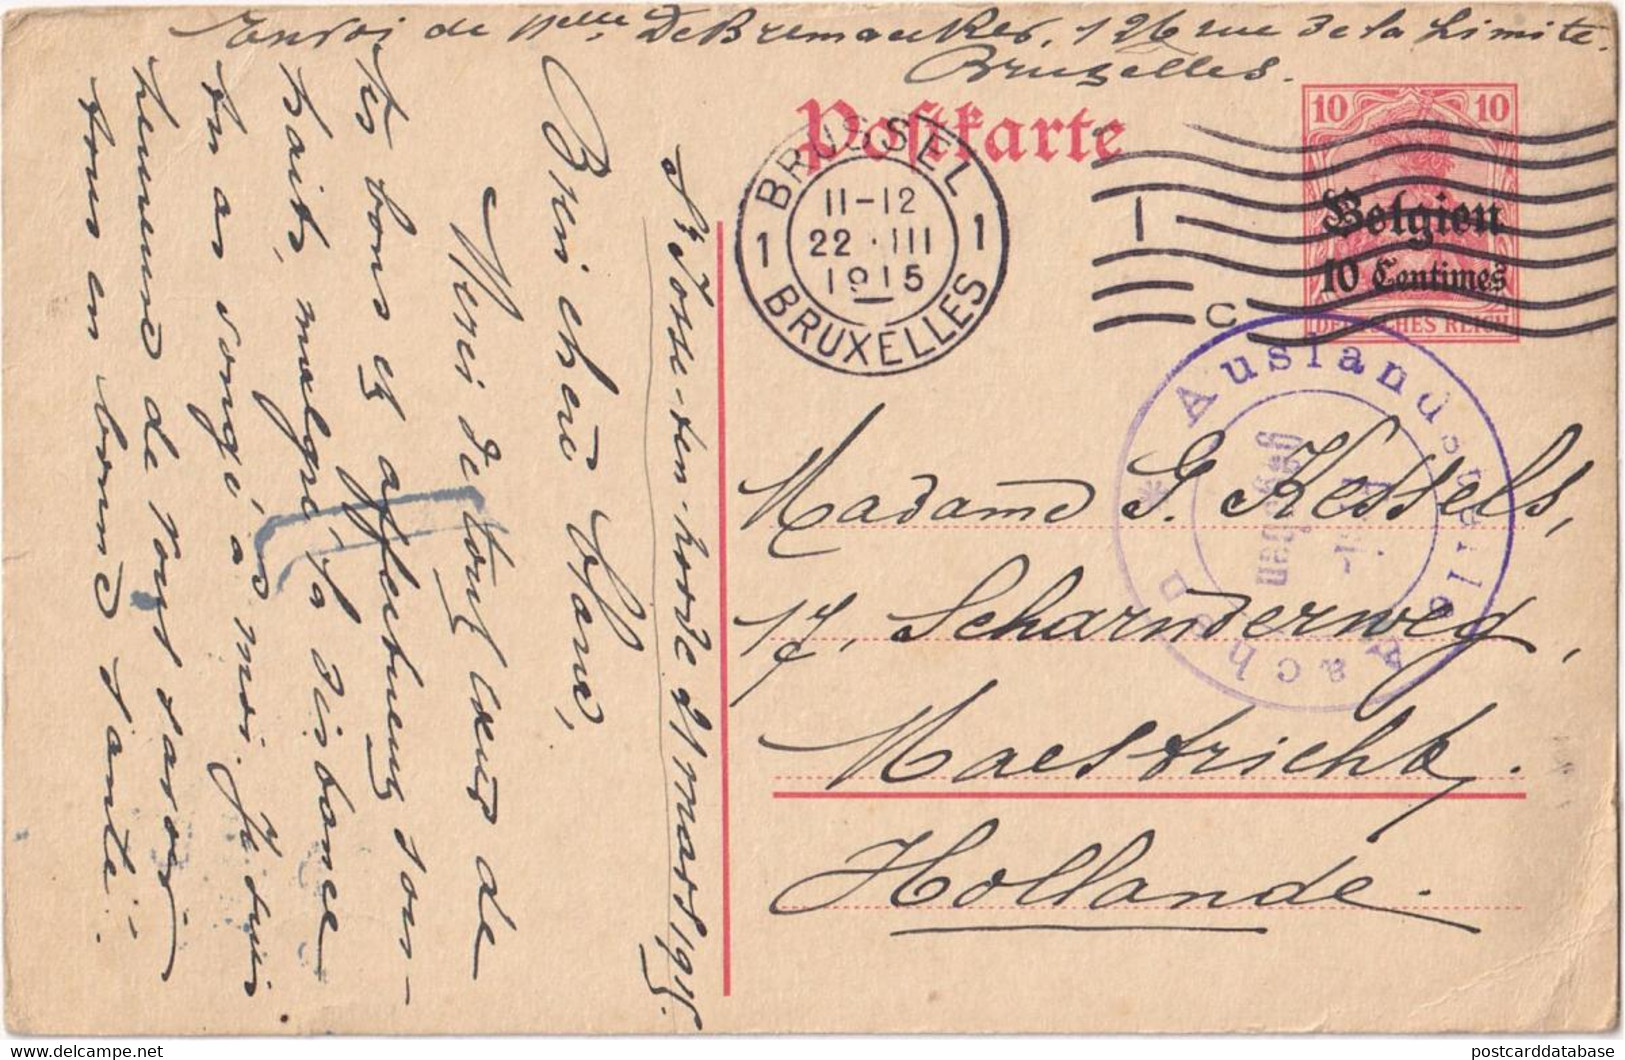 Envoi de Melle DeBremaeker, 126 rue de la Limite.
Bruxelles.
Postkarte
10 10
Belgien
10 Centimes
DEUTSCHES REICH
BRUSSEL
1 1
11-12
22 III
1915
BRUXELLES
1
C
Auslandsstelle Aachen
Freigegeben
Madame G. Kessels,
17, Scharnderweg,
Maestricht.
Hollande.
St Josse-ten-noode 21 mars 1915.
Bien chère
Merci de tout cœur de
tes bons et affectueux sou-
haits, malgré la distance
tu as songé à moi. Je suis
heureuse de vous savoir
tous en bonne santé.
postcarddatabase